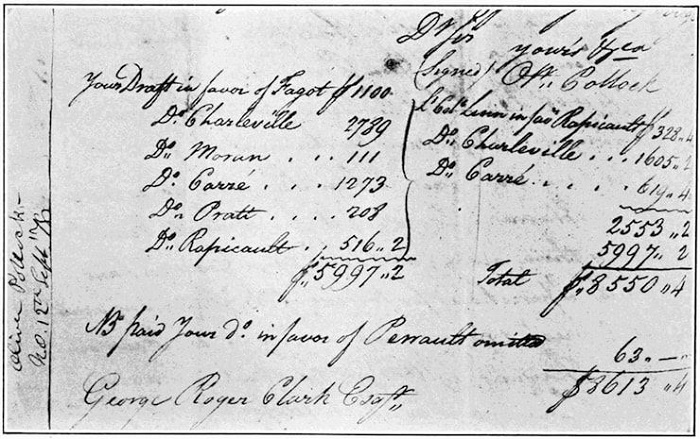 Dr Sir
your's &ca
(Signed) Olr. Pollock
Your Draft in favor of Fagot $ 1100
Do. Charleville 2789
Do. Moran . . . 111
Do. Carré . . . 1273
Do. Prati . . . 208
Do. Rapicault . . 516 „ 2
$ 5997 „ 2
Lt. Colo. Linn in favr Rapicault $ 328 „ 4
Do. Charleville . . . 1605 „ 2
Do. Carré . . . . 619 „ 4
2553 „ 2
5997 „ 2
Total $ 8550 „ 4
NB paid Your do. in favor of Perrault omitted
63 „ —
$ 8613 „ 4
George Roger Clark Esqr.
Olive Pollock —
No. 12th Sept.